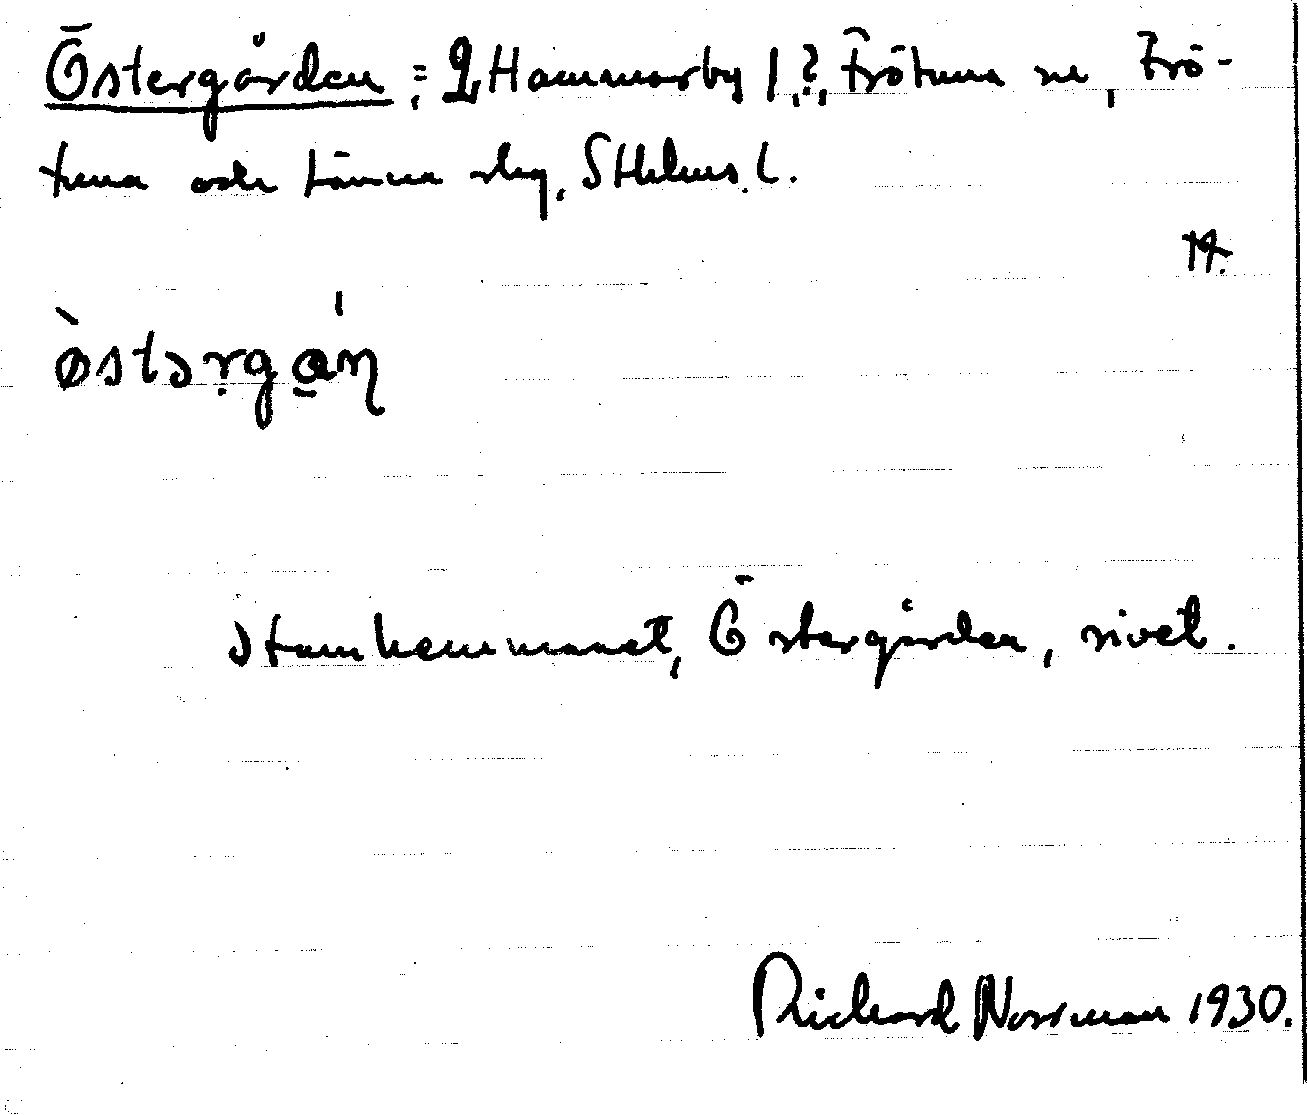 Östergården: 2 Hammarby 1?, Frötuna sn, Frö-
tuna och Länna skg, Sthlms l.
14.
ö̀stərgá̱ɳ
Stamhemmanet, Östergården, rivet.
Richard Norrman 1930.